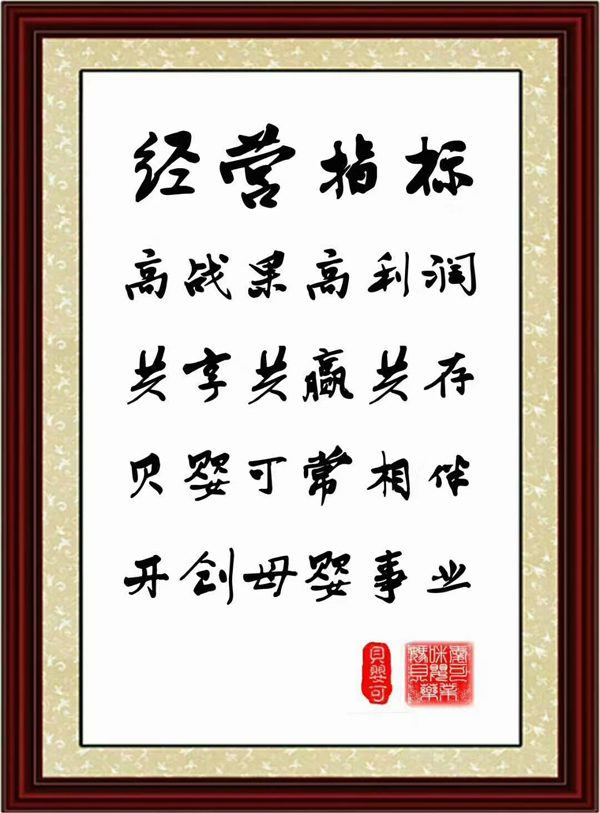 经营指标
高战果高利润
共享共赢共存
贝婴可常相伴
开创母婴事业
貝婴可